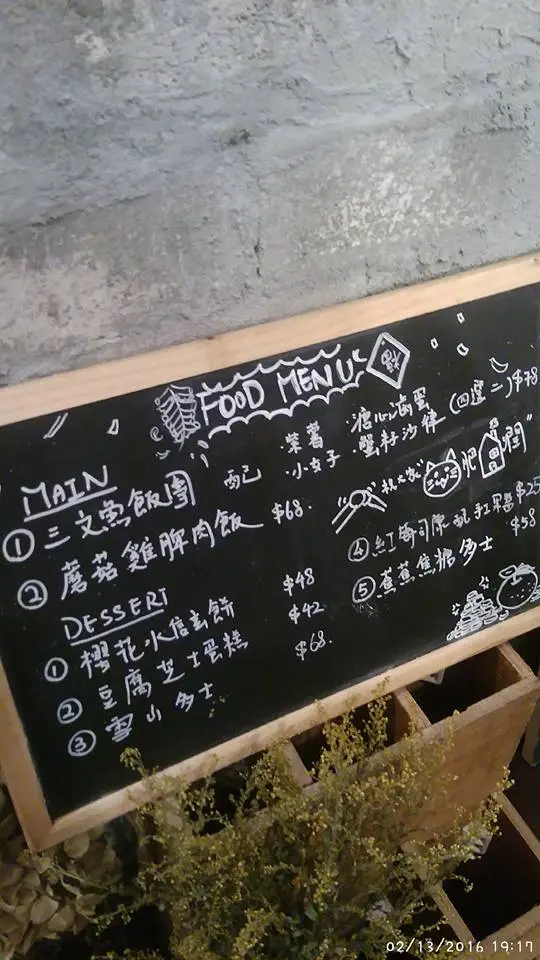 FOOD MENU
MAIN
① 三文魚飯團 配 紫薯 糖心滷蛋 (四選二) $78
小女子 蟹籽沙律
② 蘑菇雞脾肉飯 $68.
祝大家 肥潤"
DESSERT
① 櫻花水信玄餅 $48
② 豆腐芝士蛋糕 $42
③ 雪山多士 $68.
④ 紅莓司康配紅果醬 $25
⑤ 蕉蕉焦糖多士 $58
02/13/2016 19:17